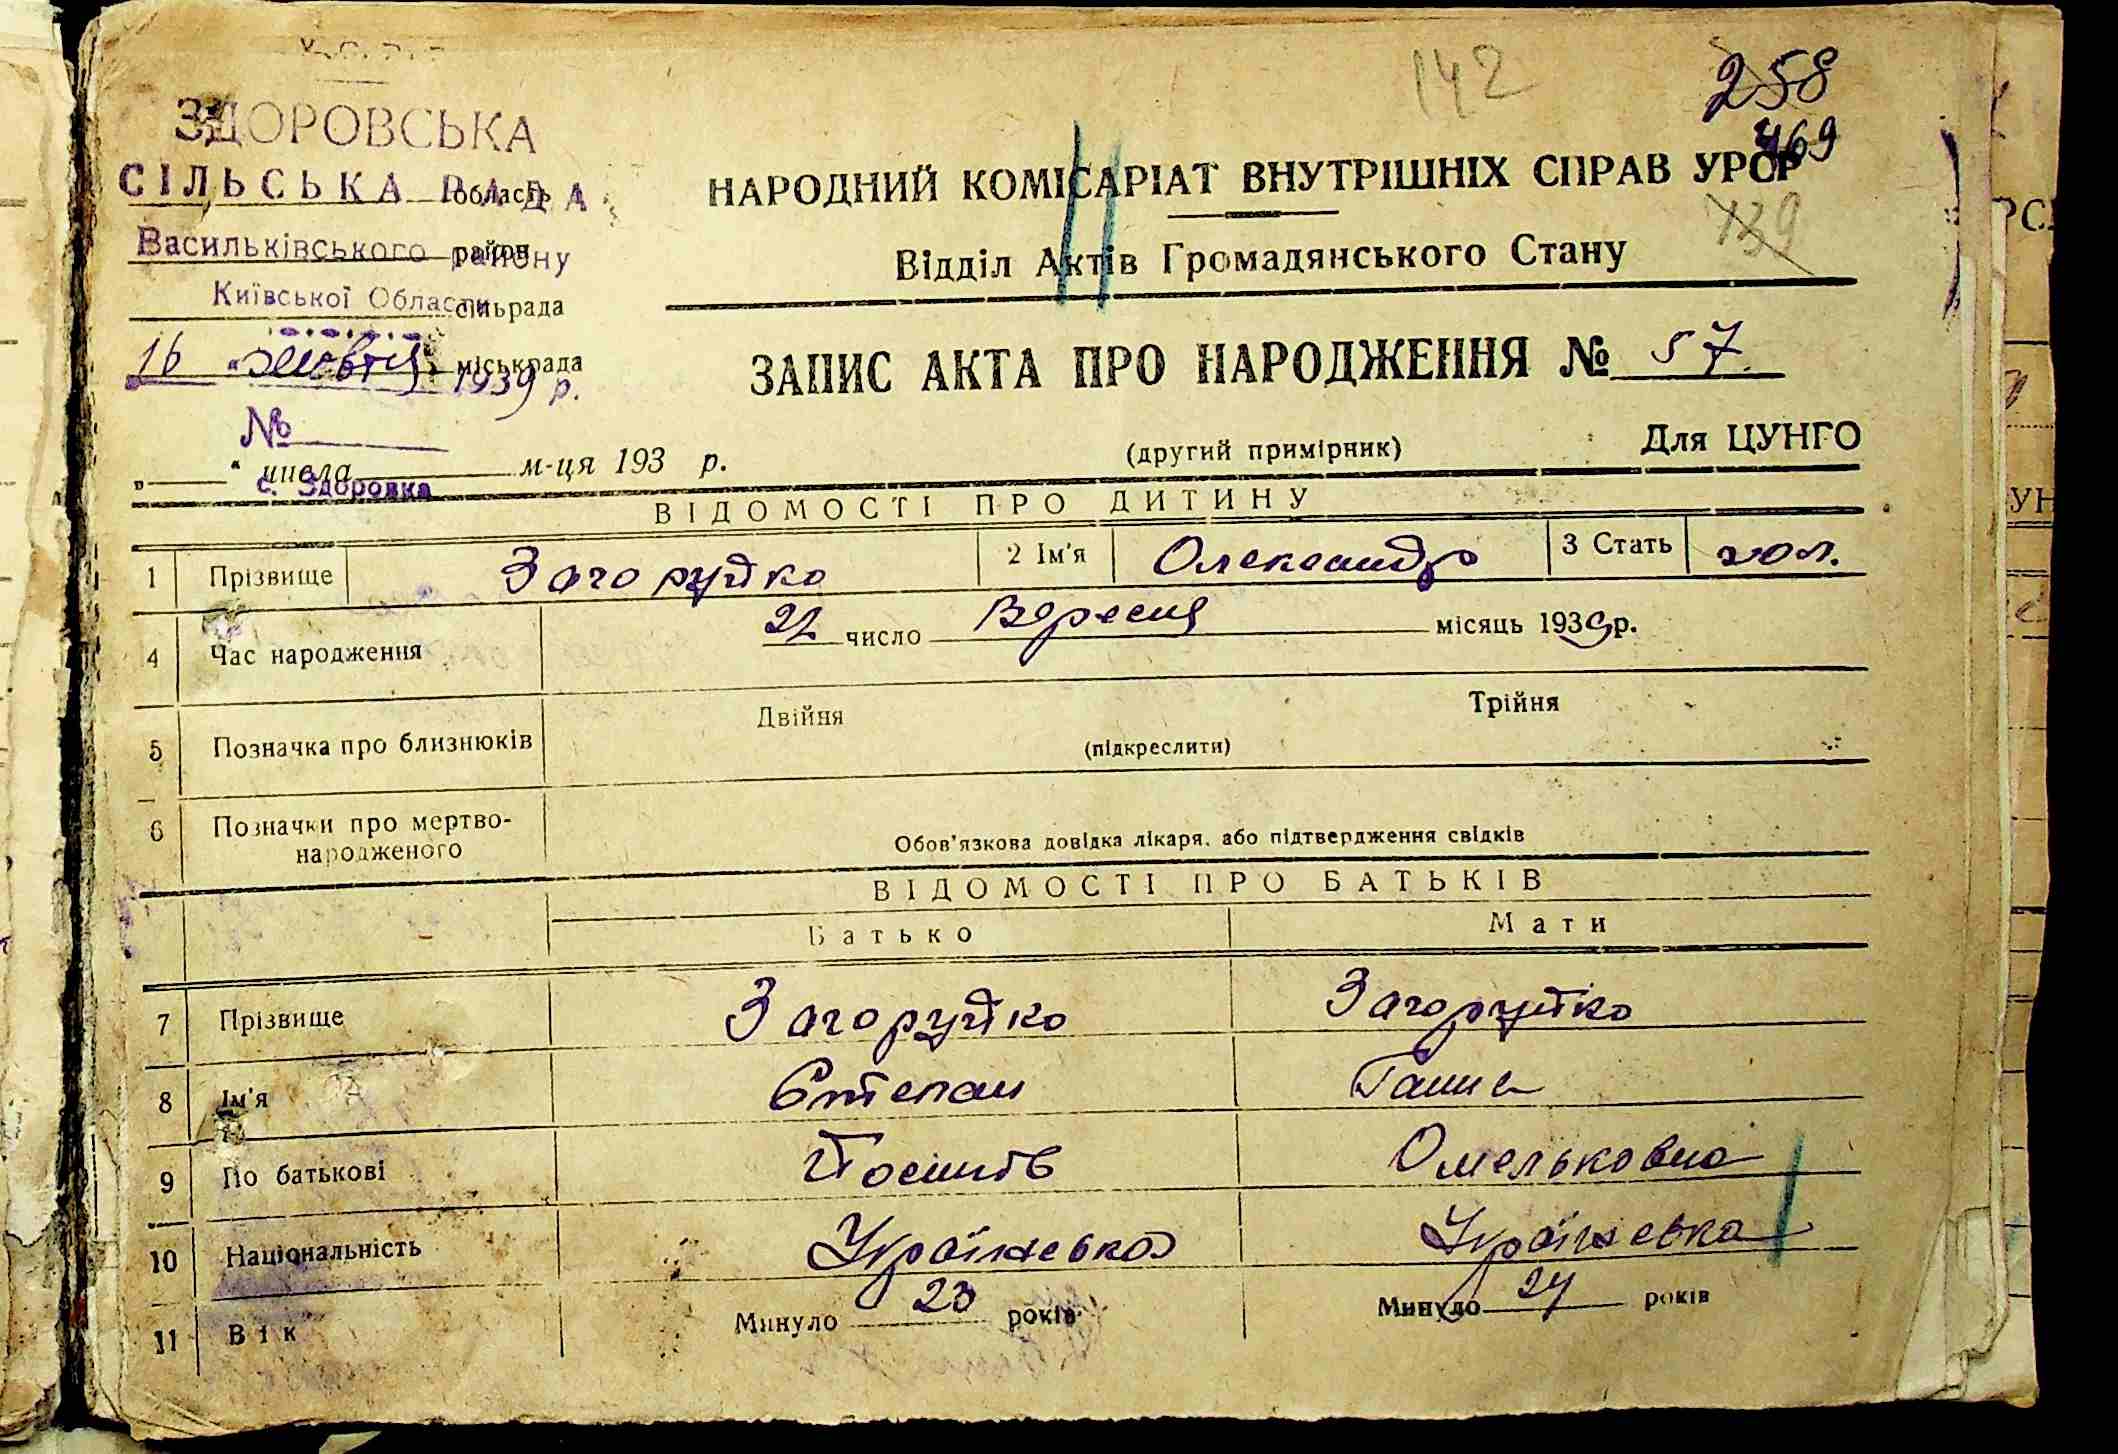 142
258
469
739
ЗДОРОВСЬКА
СІЛЬСЬКА РАДА область
Васильківського району район
Київської Области сільрада
16 " жовтня 1939 р. міськрада
№
" числа м-ця 193 р.
с. Здоровка
НАРОДНИЙ КОМІСАРІАТ ВНУТРІШНІХ СПРАВ УРСР
Відділ Актів Громадянського Стану
ЗАПИС АКТА ПРО НАРОДЖЕННЯ № 57.
(другий примірник)
Для ЦУНГО
ВІДОМОСТІ ПРО ДИТИНУ
1 Прізвище Загоруйко 2 Ім'я Олександр 3 Стать чол.
4 Час народження 22 число Вересня місяць 1939 р.
5 Позначка про близнюків Двійня Трійня
(підкреслити)
6 Позначки про мертво-
народженого Обов'язкова довідка лікаря, або підтвердження свідків
ВІДОМОСТІ ПРО БАТЬКІВ
Батько Мати
7 Прізвище Загоруйко Загоруйко
8 Ім'я Степан Ганна
9 По батькові Йосипів Омельковна
10 Національність Українська Українська
11 Вік Минуло 23 років Минуло 24 років